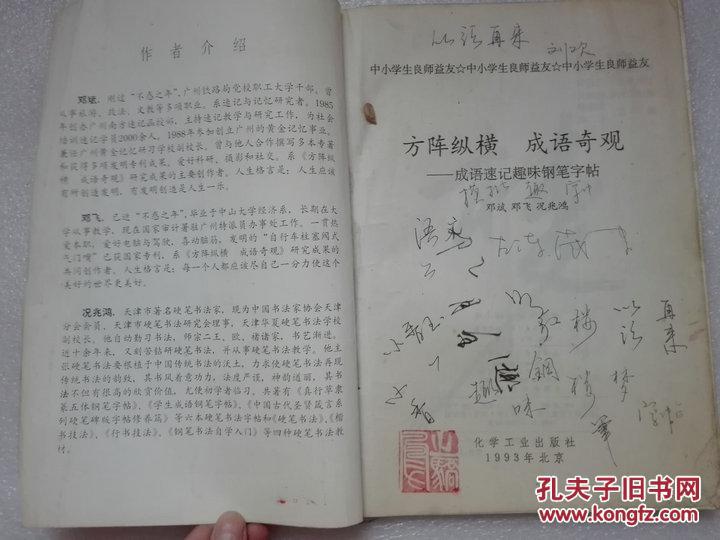 作者介绍
邓斌：刚过“不惑之年”，广州铁路局党校职工大学干部，曾
从事旅游、政法、文教等多项职业。系速记与记忆研究者，1985
年创办广州南方速记函授部，主持速记教学与研究工作，为社会
培训速记学员2000余人。1988年参加创立广州的黄金记忆事业，
兼任广州黄金记忆研习学校副校长。曾与他人合作撰写多本专著
和获得多项发明专利成果。爱好科研、摄影和社交。系《方阵纵
横　成语奇观》研究成果的主要创作者。人生格言是：人生应该
有所创造发明，有发明创造是人生一乐。
邓飞：已进“不惑之年”，毕业于中山大学经济系，长期在大
学从事教学，现在国家审计署驻广州特派员办事处工作。一贯热
爱本职，爱好电脑与驾驶，喜动脑筋，发明的“自行车柱塞阀式
气门嘴”已获国家专利，系《方阵纵横　成语奇观》研究成果的
共同创作者。人生格言是：每一个人都应该尽自己一分力使这个
美好的世界更美好。
况兆鸿：天津市著名硬笔书法家，现为中国书法家协会天津
分会会员，天津市硬笔书法研究会理事，天津华夏硬笔书法学校
副校长。他自幼勤习书法，师宗二王、欧、褚诸家，书艺渐进。
近十余年来，又刻苦钻研硬笔书法，并从事硬笔书法教学。他主
张硬笔书法要根植于中国传统书法的沃土，力求使硬笔书法再现
传统书法的韵致，其书风着意功力，法度严谨，神韵道丽，其书
法不但有很高的欣赏价值，尤便初学者临习。共著有《真行草隶
篆五体钢笔字帖》、《学生成语钢笔字帖》、《中国古代圣贤箴言系
列硬笔碑版字帖修养篇》等六本硬笔书法字帖和《硬笔书法》、《楷
书技法》、《行书技法》、《钢笔书法自学入门》等四种硬笔书法教
材。
以话再来
中小学生良师益友☆中小学生良师益友☆中小学生良师益友
方阵纵横　成语奇观
——成语速记趣味钢笔字帖
邓斌 邓飞 况兆鸿
语
红楼
以话
再来
梦
钢
趣味
化学工业出版社
1993年北京
孔夫子旧书网